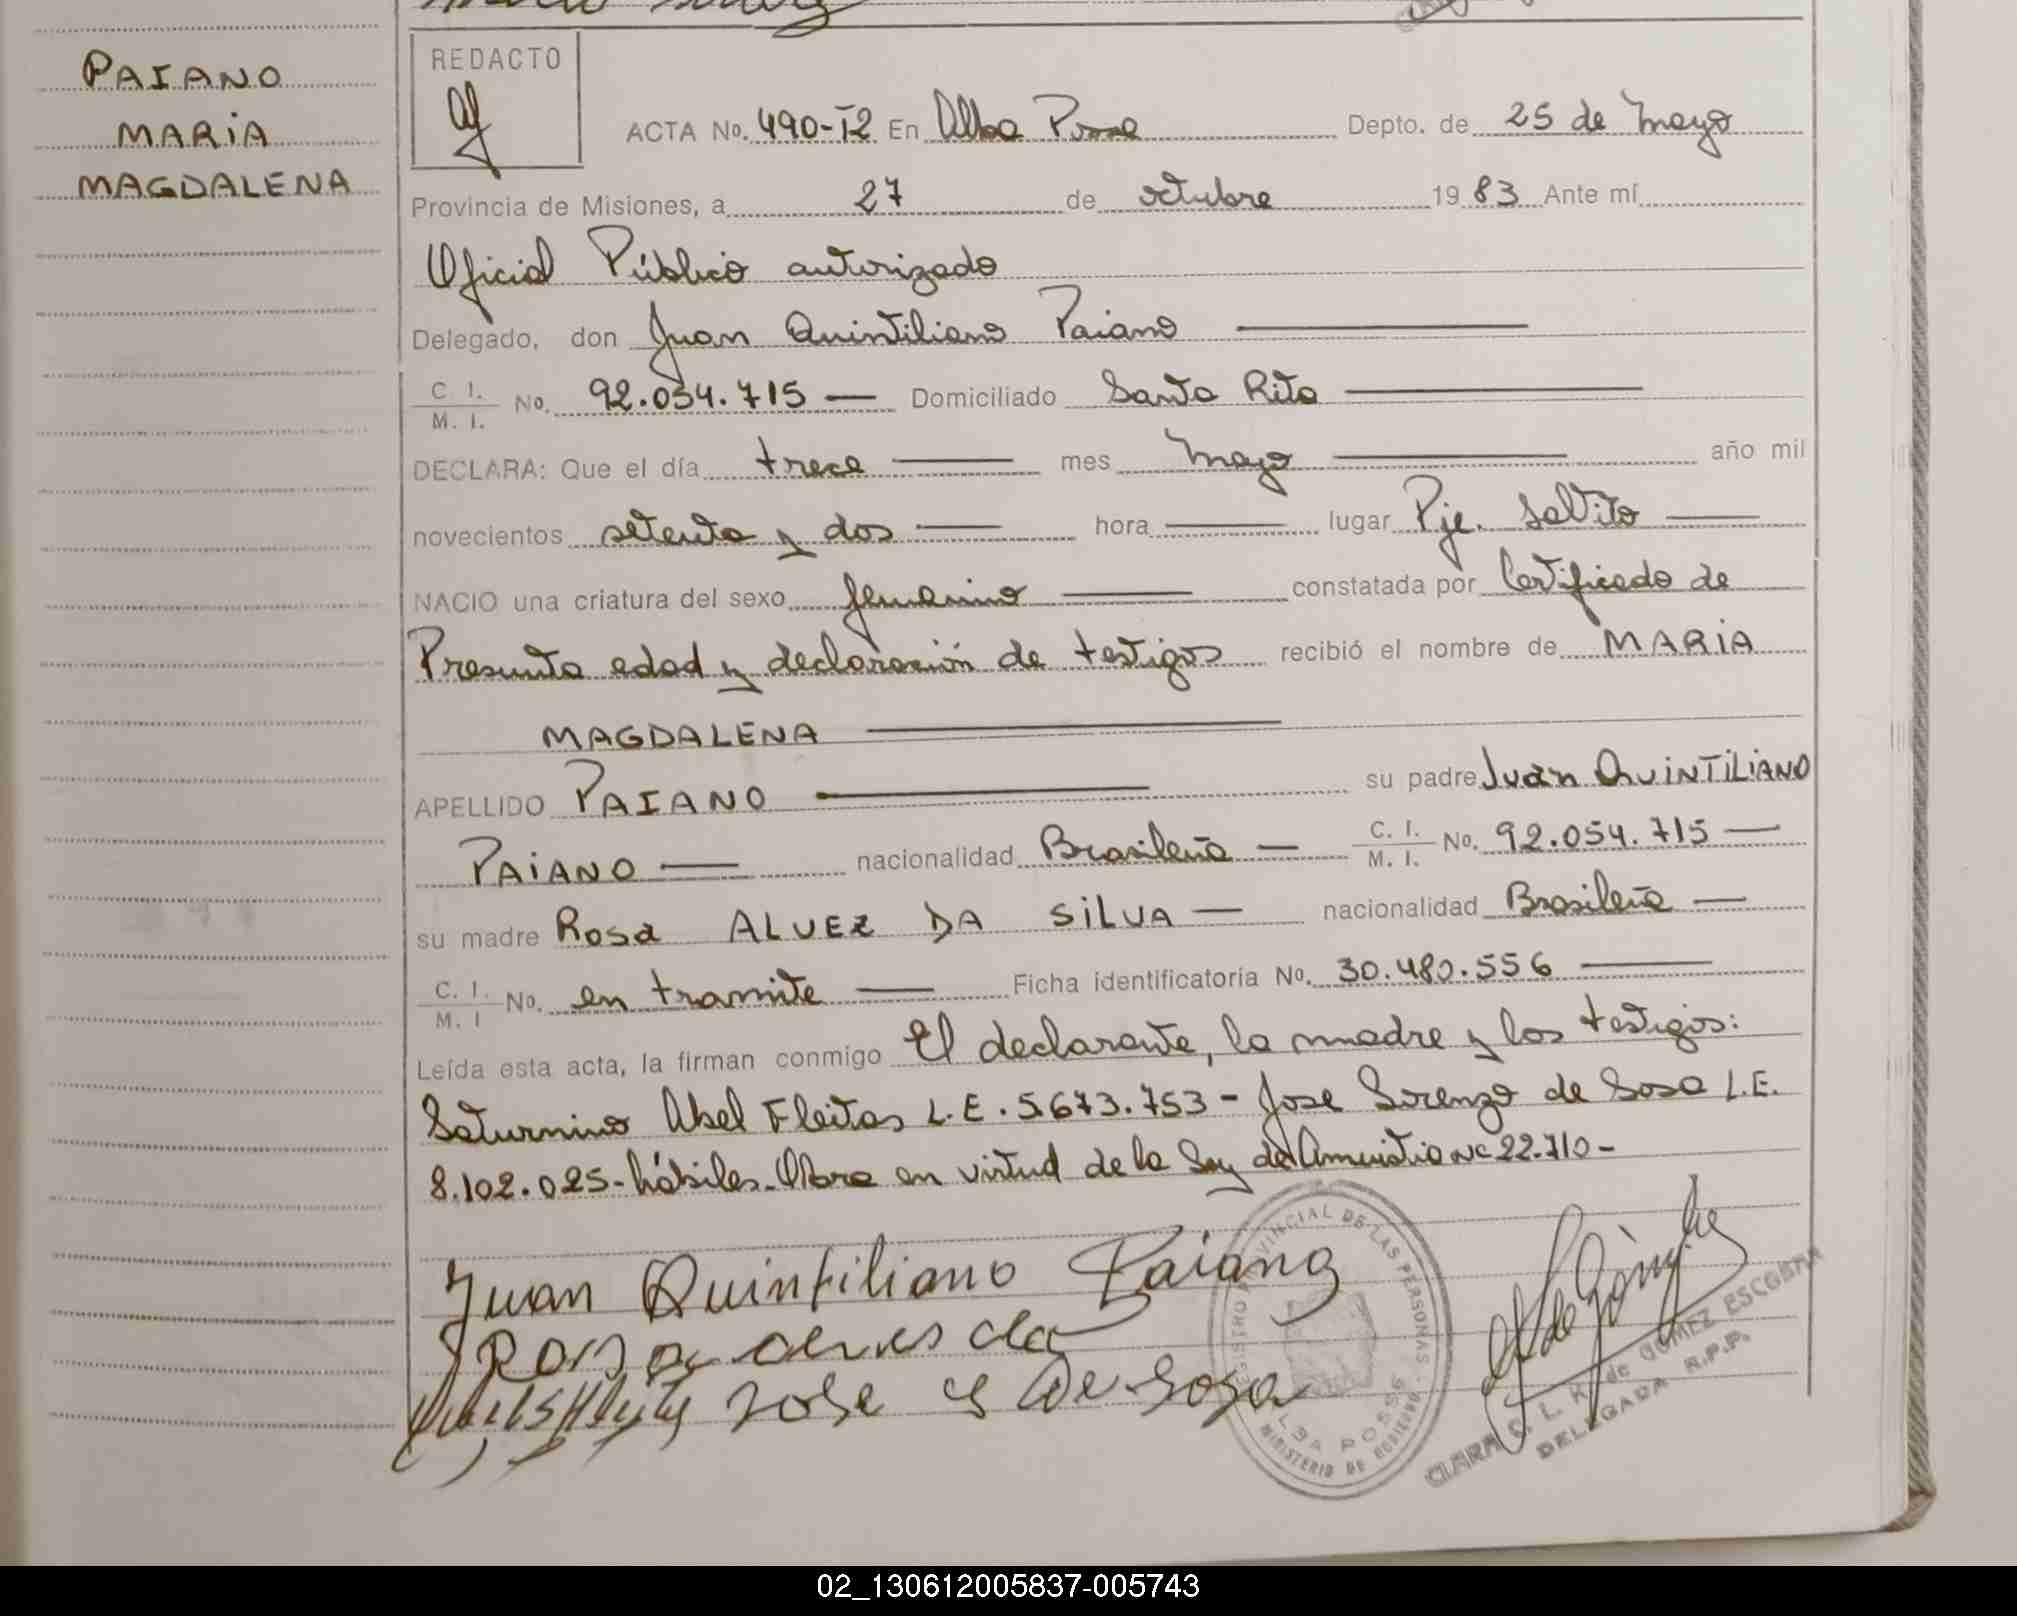 PAIANO
MARIA
MAGDALENA
REDACTO
ACTA No. 490-T2 En Alba Posse Depto. de 25 de Mayo
Provincia de Misiones, a 27 de octubre 19 83 Ante mí
Oficial Público autorizado
Delegado, don Juan Quintiliano Paiano
C. I. / M. I. No. 92.054.715 — Domiciliado Santa Rita
DECLARA: Que el día trece mes Mayo año mil
novecientos setenta y dos hora — lugar Pje. Saltito
NACIO una criatura del sexo femenino constatada por Certificado de
Presunta edad y declaración de testigos recibió el nombre de MARIA
MAGDALENA
APELLIDO PAIANO su padre Juan QUINTILIANO
PAIANO — nacionalidad Brasileña — C. I. / M. I. No. 92.054.715 —
su madre Rosa ALVEZ DA SILVA — nacionalidad Brasileña —
C. I. / M. I No. en tramite — Ficha identificatoria No. 30.480.556
Leída esta acta, la firman conmigo El declarante, la madre y los testigos:
Saturnino Abel Fleitas L.E. 5.673.753 - Jose Lorenzo de Sosa L.E.
8.102.025 - hábiles. Obra en virtud de la Ley de Amnistia Nº 22.710 -
Juan Quintiliano Paiano
Rosa alves da
Jose L De Sosa
REGISTRO PROVINCIAL DE LAS PERSONAS - MINISTERIO DE GOBIERNO
ALBA POSSE
CLARA C. L. K. de GOMEZ ESCOBAR
DELEGADA R.P.P.
02_130612005837-005743